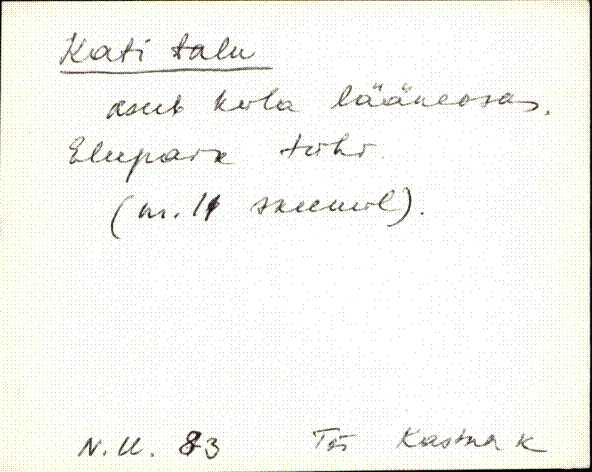 Kati talu
asub küla lääneosas.
Elupaik tühi.
(nr. 11 skeemil).
N.U. 83 Tõs Kastna k